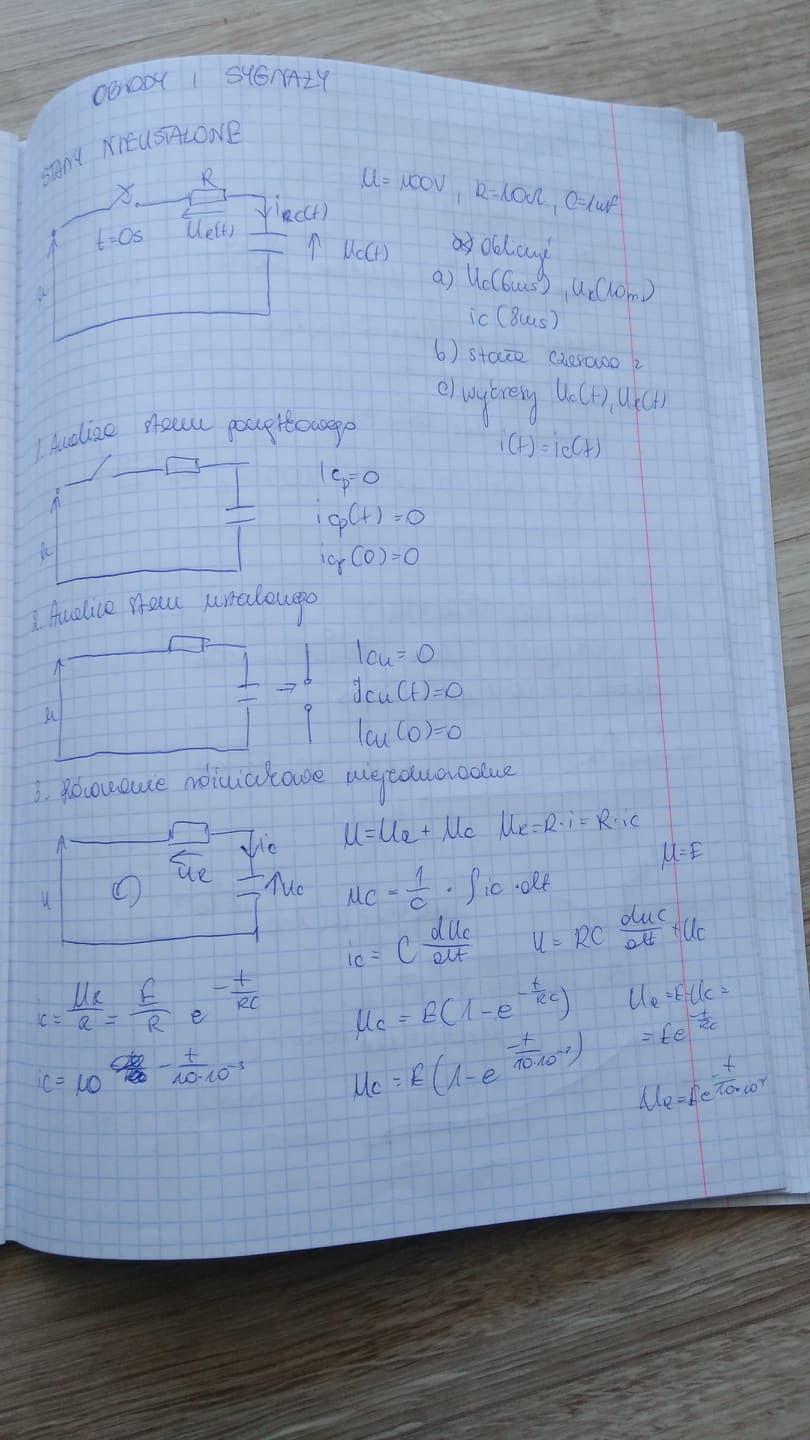 OBWODY I SYGNAŁY
STANY NIEUSTALONE
R
t=0s
uR(t)
uc(t)
U=100V, R=10Ω, C=1mF
Obliczyć
a) Uc(6ms), UR(10ms)
ic(8ms)
b) stałe czasowe
c) wykresy Uc(t), UR(t)
i(t)=ic(t)
1. Analiza stanu początkowego
Icp=0
icp(t)=0
icp(0)=0
2. Analiza stanu ustalonego
u
Icu=0
Icu(t)=0
Icu(0)=0
3. Równanie różniczkowe niejednorodne
u
uR
ic
uc
U=UR+Uc UR=R·i=R·ic
U=E
Uc=1/C·∫ic·dt
ic=C dUc/dt U=RC duc/dt+Uc
ic=UR/R=E/R e^(-t/RC)
Uc=E(1-e^(-t/RC)) UR=E-Uc=
=Ee^(-t/RC)
ic=10 -t/10·10⁻³
Uc=E(1-e^(-t/10·10⁻³))
UR=Ee^(-t/10·10⁻³)